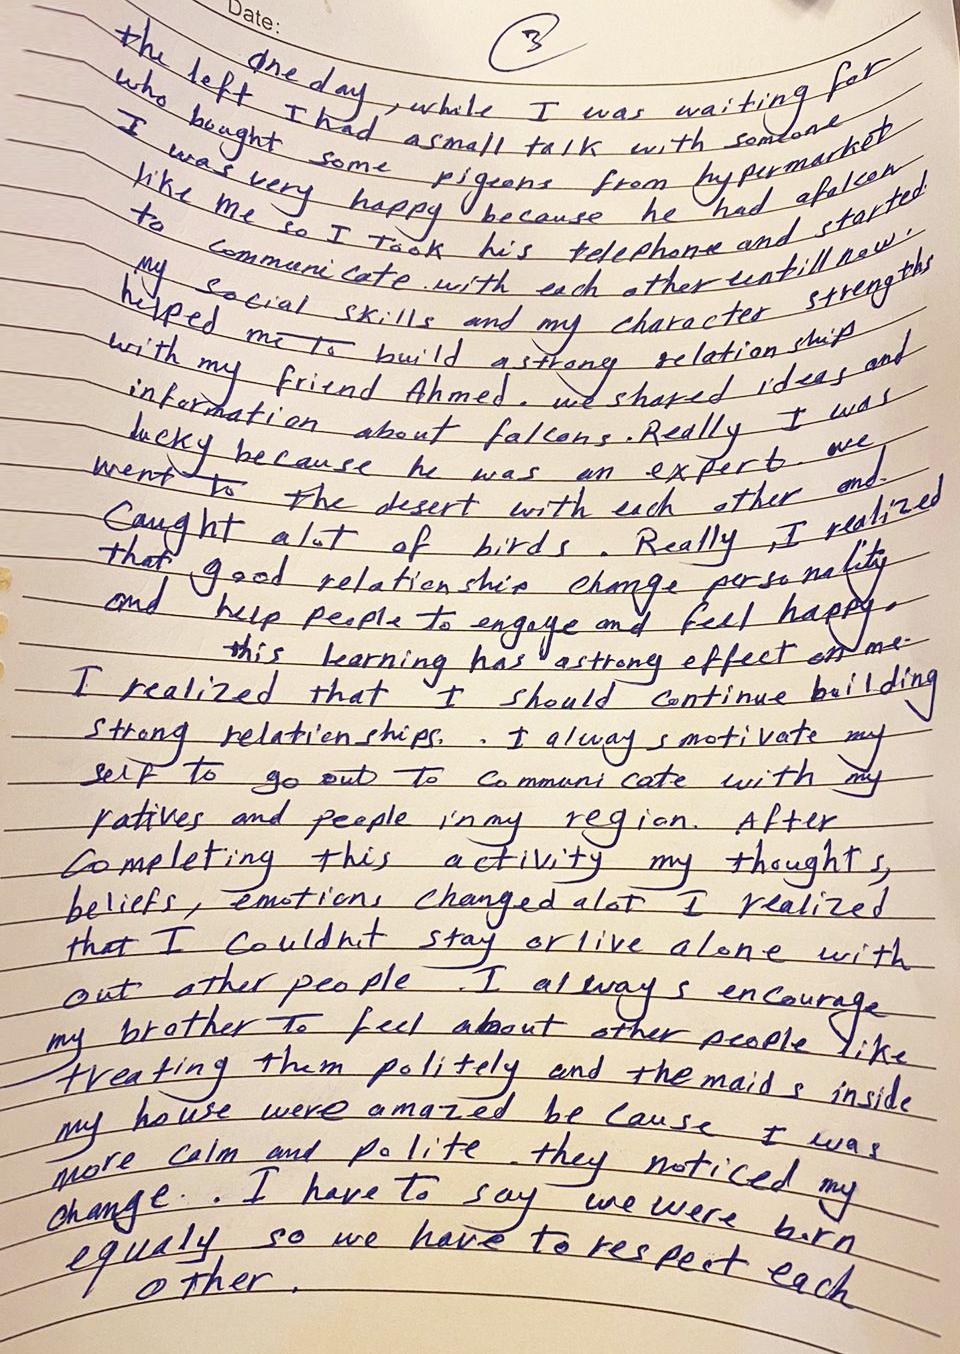 Date:
3
One day, while I was waiting for
the left I had asmall talk with someone
who bought some pigeons from hypermarket
I was very happy because he had afalcon
like me so I Took his telephone and started
to communicate with each other untill now.
my social skills and my character strengths
helped me to build astrong relationship
with my friend Ahmed. we shared ideas and
information about falcons. Really I was
lucky because he was an expert. we
went to the desert with each other and
Caught alot of birds. Really, I realized
that good relationship change personality
and help people to engage and feel happy.
this learning has astrong effect on me.
I realized that I should continue building
strong relationships. . I always motivate my
self to go out to communicate with my
ratives and people in my region. After
Completing this activity my thoughts,
beliefs, emotions changed alot I realized
that I Couldn't stay or live alone with
out other people . I always encourage
my brother To feel about other people like
treating them politely and the maids inside
my house were amazed be cause I was
more calm and polite. they noticed my
change. . I have to say we were born
equaly so we have to respect each
other.